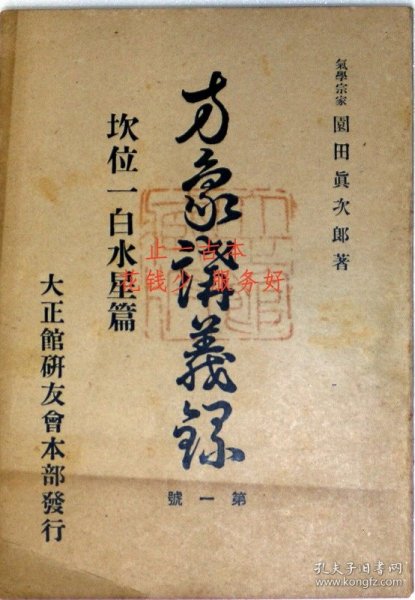 氣學宗家 園田眞次郎著
方象講義録
第一號
坎位一白水星篇
大正館研友會本部發行
止一古本
花钱少 服务好
孔夫子旧书网